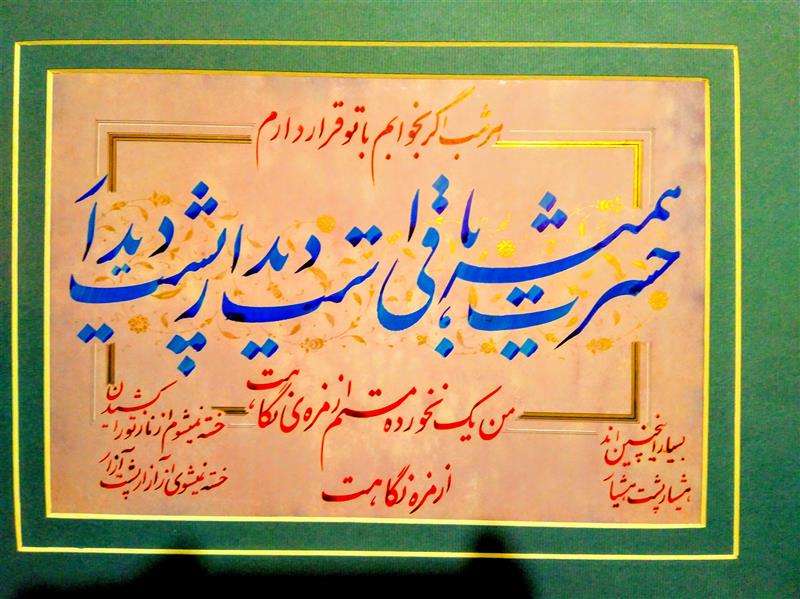 هر شب اگر بخوابم با تو قرار دارم
حسرت همیشه باقی است دیدار پشت دیدار
من یک نخورده مستم از مزه ی نگاهت
از مزه نگاهت
بسیار اینچنین اند
هشیار پشت هشیار
خسته نمیشوم از ناز تو را کشیدن
خسته نمیشوی از آزار پشت آزار